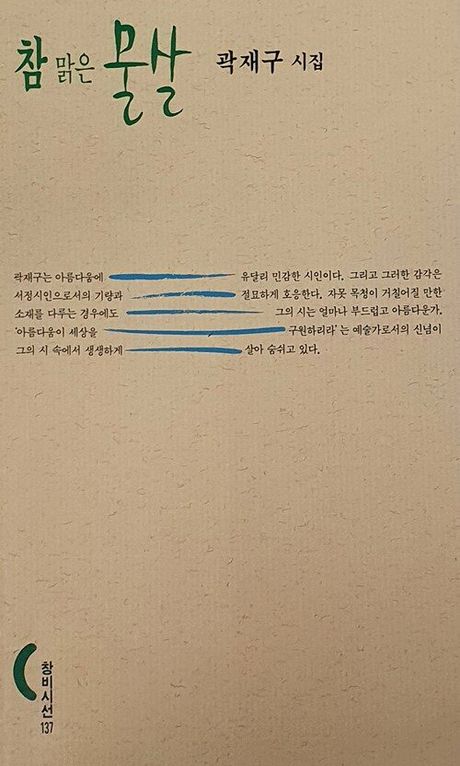 참 맑은 물살 곽재구 시집
곽재구는 아름다움에 유달리 민감한 시인이다. 그리고 그러한 감각은
서정시인으로서의 기량과 절묘하게 호응한다. 자못 목청이 거칠어질 만한
소재를 다루는 경우에도 그의 시는 얼마나 부드럽고 아름다운가.
'아름다움이 세상을 구원하리라'는 예술가로서의 신념이
그의 시 속에서 생생하게 살아 숨쉬고 있다.
창비시선
137